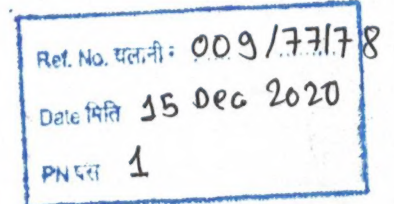 Ref. No. चला.नी: 009/77/78
Date मिति 15 Dec 2020
PN पृष्ठ 1